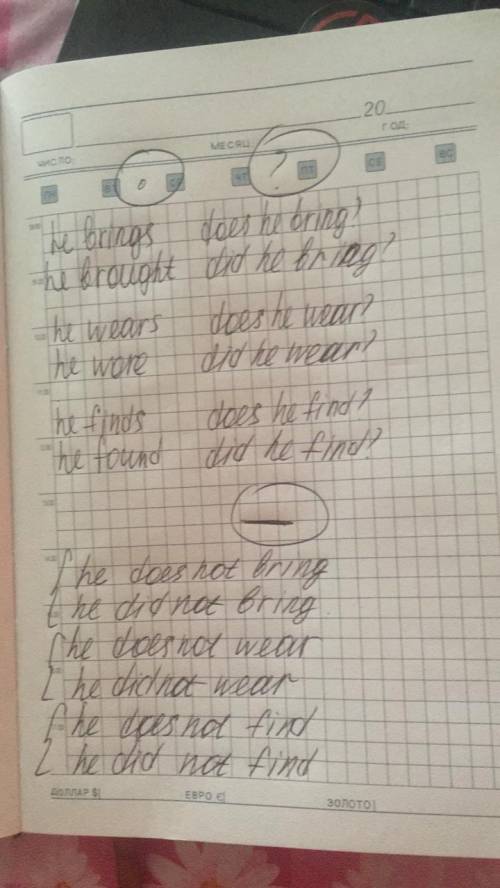 20
ЧИСЛО: МЕСЯЦ: ГОД:
ПН ВТ СР ЧТ ПТ СБ ВС
. ?
he brings does he bring?
he brought did he bring?
he wears does he wear?
he wore did he wear?
he finds does he find?
he found did he find?
—
he does not bring
he did not bring
he does not wear
he did not wear
he does not find
he did not find
ДОЛЛАР $| ЕВРО €| ЗОЛОТО|